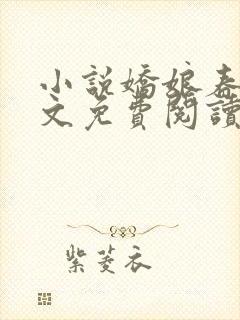 小說嬌娘春
文免費閱讀
紫菱衣